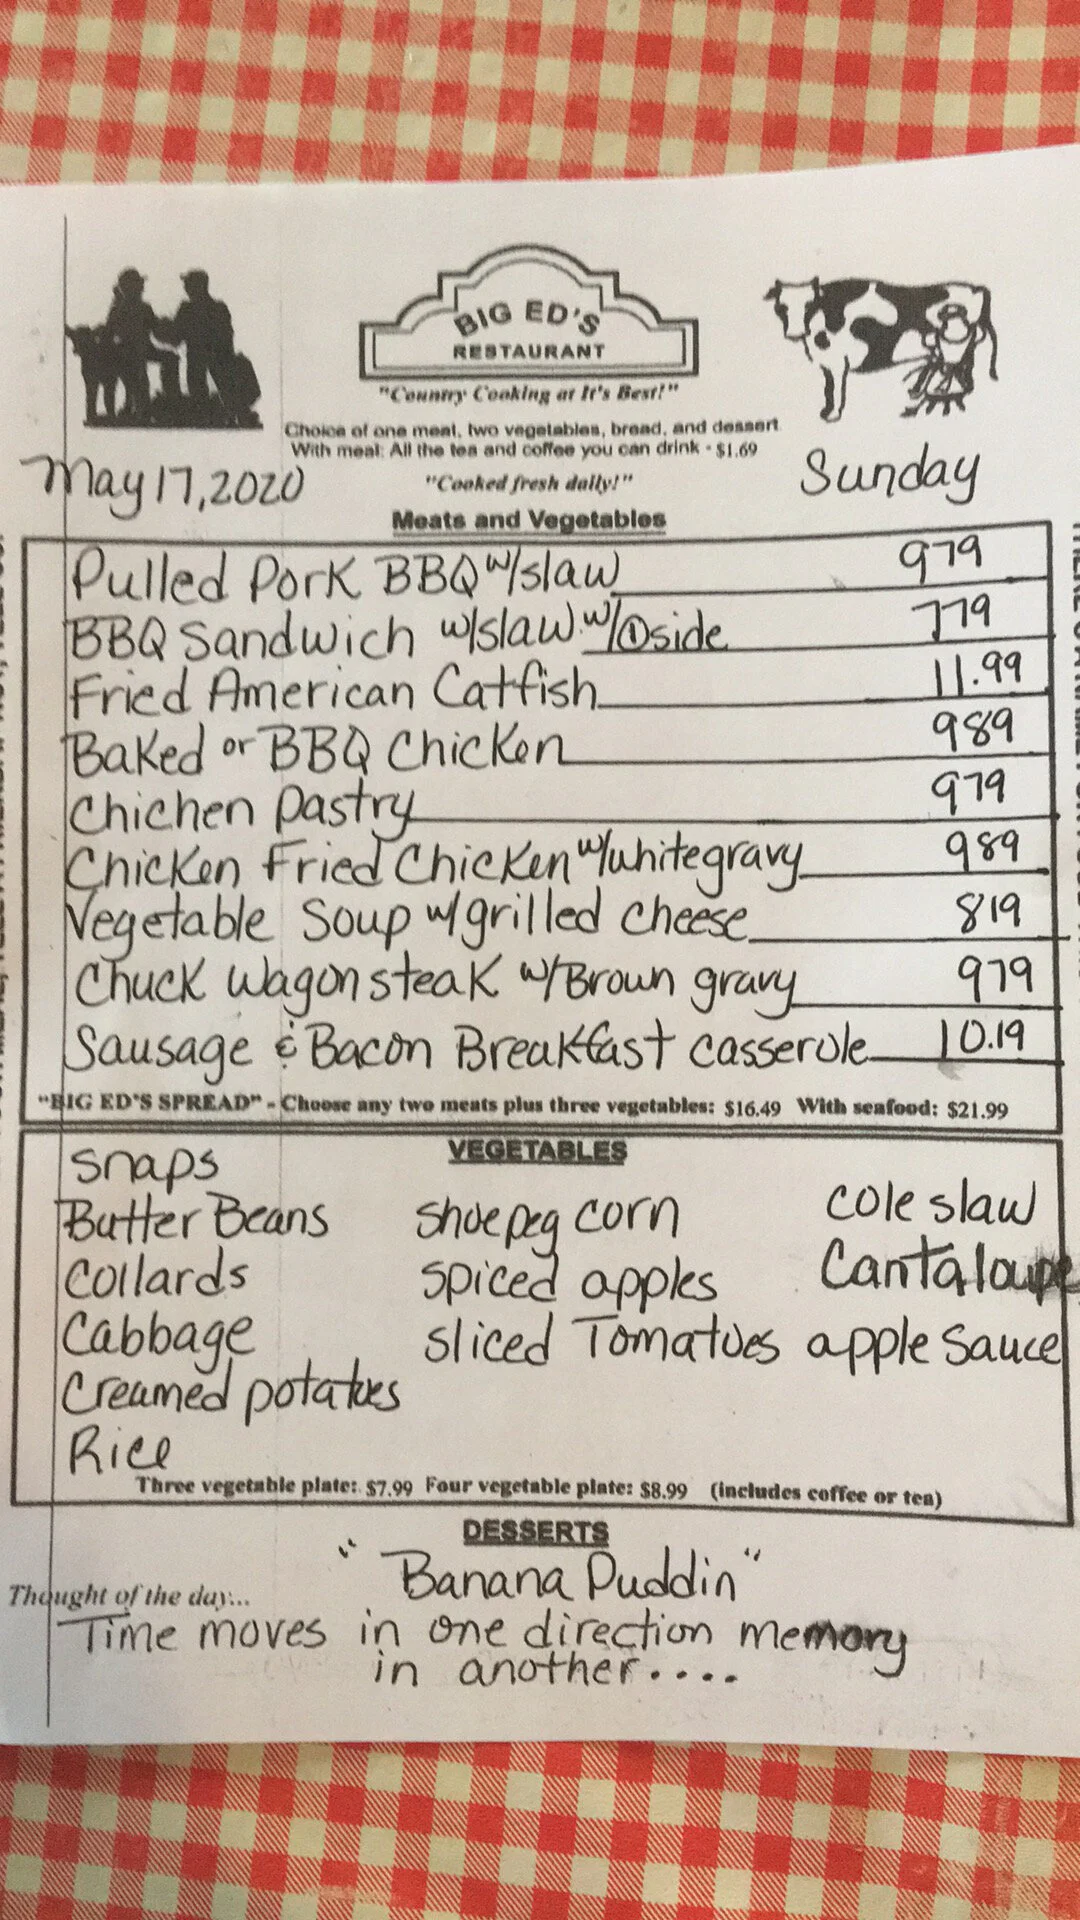 BIG ED'S
RESTAURANT
"Country Cooking at It's Best!"
Choice of one meat, two vegetables, bread, and dessert
With meal: All the tea and coffee you can drink - $1.69
May 17, 2020
"Cooked fresh daily!"
Sunday
Meats and Vegetables
Pulled Pork BBQ w/slaw 979
BBQ Sandwich w/slaw w/①side 779
Fried American Catfish 11.99
Baked or BBQ Chicken 989
Chichen Pastry 979
Chicken Fried Chicken w/white gravy 989
Vegetable Soup w/grilled cheese 819
Chuck Wagon steak w/Brown gravy 979
Sausage & Bacon Breakfast casserole 10.19
"BIG ED'S SPREAD" - Choose any two meats plus three vegetables: $16.49 With seafood: $21.99
VEGETABLES
snaps
Butter Beans shoepeg corn cole slaw
Collards spiced apples Cantaloupe
Cabbage sliced Tomatoes apple sauce
Creamed potatoes
Rice
Three vegetable plate: $7.99 Four vegetable plate: $8.99 (includes coffee or tea)
DESSERTS
"Banana Puddin"
Thought of the day...
Time moves in one direction memory
in another....